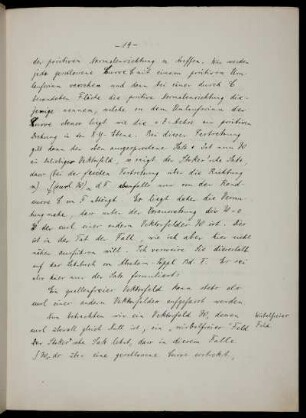 - 19 -
der positiven Normalenrichtung zu treffen. Wir werden
jede geschlossene Kurve C mit einem positiven Um-
laufssinn versehen und dann bei einer durch C
berandeten Fläche die positive Normalenrichtung die-
jenige nennen, welche zu dem Umlaufssinn der
Kurve ebenso liegt wie die z-Achse zur positiven
Drehung in der x y-Ebene. Bei dieser Festsetzung
gilt dann der oben ausgesprochene Satz. Ist nun W
ein beliebiges Vektorfeld, so zeigt der Stokes'sche Satz,
dass (bei der gleichen Festsetzung über die Richtung
n) ∫(curl W)n d F nur von der Rand-
curve C von F abhängt. Es liegt daher die Vermu-
tung nahe, dass unter der Voraussetzung div W = 0
W der curl eines andern Vektorfeldes ist. Dies
ist in der Tat der Fall, wie ich aber hier nicht
näher ausführen will. Ich verweise Sie dieserhalb
auf das Lehrbuch von Abraham-Föppl Bd. I. Es sei
also hier nur der Satz formuliert:
Ein quellenfreies Vektorfeld kann stets als
curl eines andern Vektorfeldes aufgefasst werden.
Nun betrachten wir ein Vektorfeld W, dessen
curl überall gleich Null ist, ein "wirbelfreies" Feld.
Wirbelfreies
Feld.
Der Stokes'sche Satz lehrt, dass in diesem Falle
∫ Ws ds über eine geschlossene Curve verschwindet.